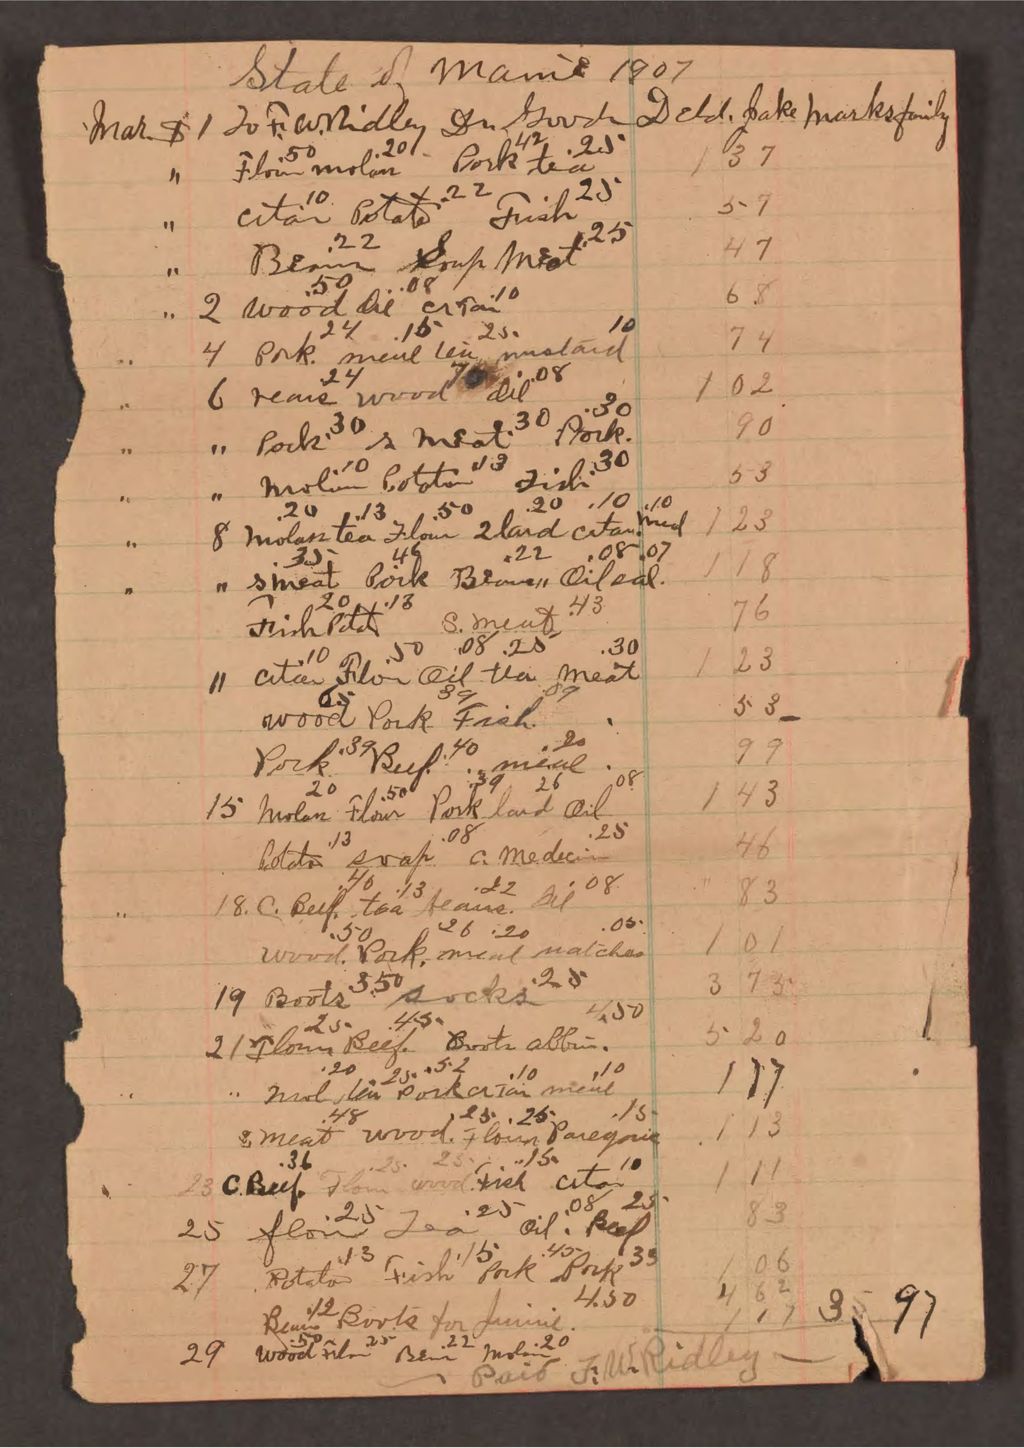 State of Maine 1907
Mar $ 1 To F. W. Ridley Dr. Goods Deld. Jake Marks family
" Flour .50 molan .20 Pork .42 tea .25 1 37
" citan .10 Potato .22 Fish 25 57
" Beans .22 Soup Meat .25 47
" 2 wood .50 Oil .08 crtan .10 68
" 4 Pork. 24 meal .15 tea 25 mustard 10 74
" 6 reans 24 wood 70 oil .08 1 02
" " Pork .30 s meat .30 Pork. .30 90
" " Molan .10 Potatos .13 Fish .30 53
" 8 Molass .20 tea .13 Flour .50 2 lard .20 citan .10 med .10 1 23
" " s meat .35 Pork 46 Beans .22 Oil .08 sal. .07 1 18
Fish 20 Potat .13 S. meat .43 76
" citan .10 Flour .50 Oil .08 tea .25 meat .30 1 23
wood 05 Pork 39 Fish. 09 53
Pork .39 Beef. .40 meal .20 99
15 Molass 20 Flour .50 Pork .39 lard 26 Oil 08 1 43
Potato .13 soap .08 C. Medecin .25 46
" 18. C. Beef. .40 tea .13 beans. .22 Oil .08 " 83
wood. .50 Pork. 26 meal .20 matches .05 1 01
19 Boots 3.50 socks .25 3 75
21 Flour .25 Beef. .45 Boots 4.50 5 20
" " Mol .20 tea 25 Pork .52 crtan .10 meal .10 1 17
s, meat .48 wood. .25 Flour .25 Paregoric .15 1 13
23 C. Beef. .36 Flour .25 wood 25 Fish .15 citan 10 1 11
25 flour .25 Tea .25 Oil .08 Beef 25 83
27 Potatos .13 Fish .15 Pork .45 Pork 33 1 06
Beans .12 Boots for Junie. 4.50 4 62
29 Wood .50 Flour 25 Bean .22 Molan .20 1 17 35 97
Paid F. W. Ridley